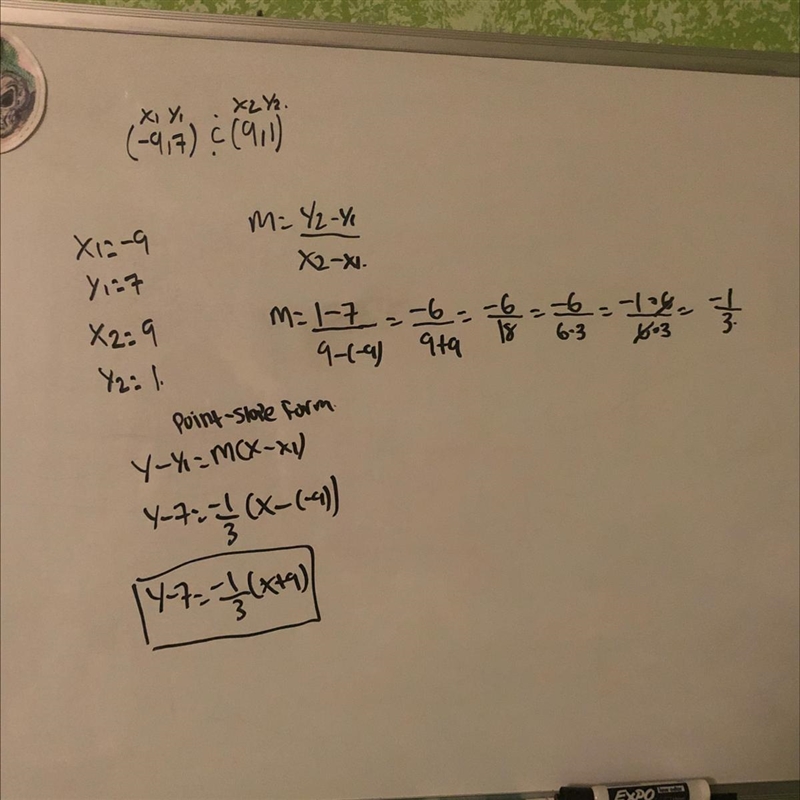 x1 y1 x2 y2.
(-9,7) ; (9,1)
x1=-9
y1=7
x2=9
y2=1.
m= y2-y1 / x2-x1.
m= 1-7 / 9-(-9) = -6 / 9+9 = -6 / 18 = -6 / 6·3 = -1·6 / 6·3 = -1 / 3.
Point-slope form.
y-y1=m(x-x1)
y-7=-1/3(x-(-9))
y-7=-1/3(x+9)
EXPO